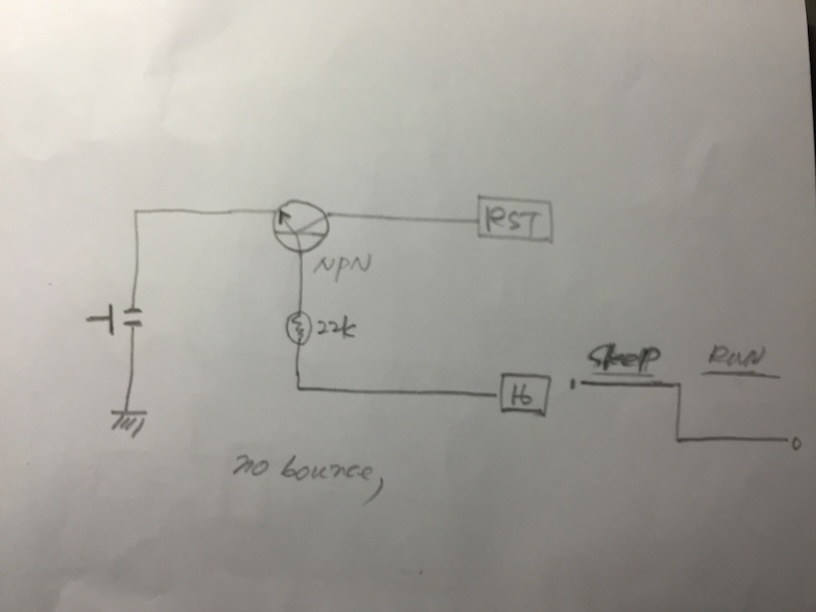 RST
NPN
22k
16
Sleep
RUN
no bounce,